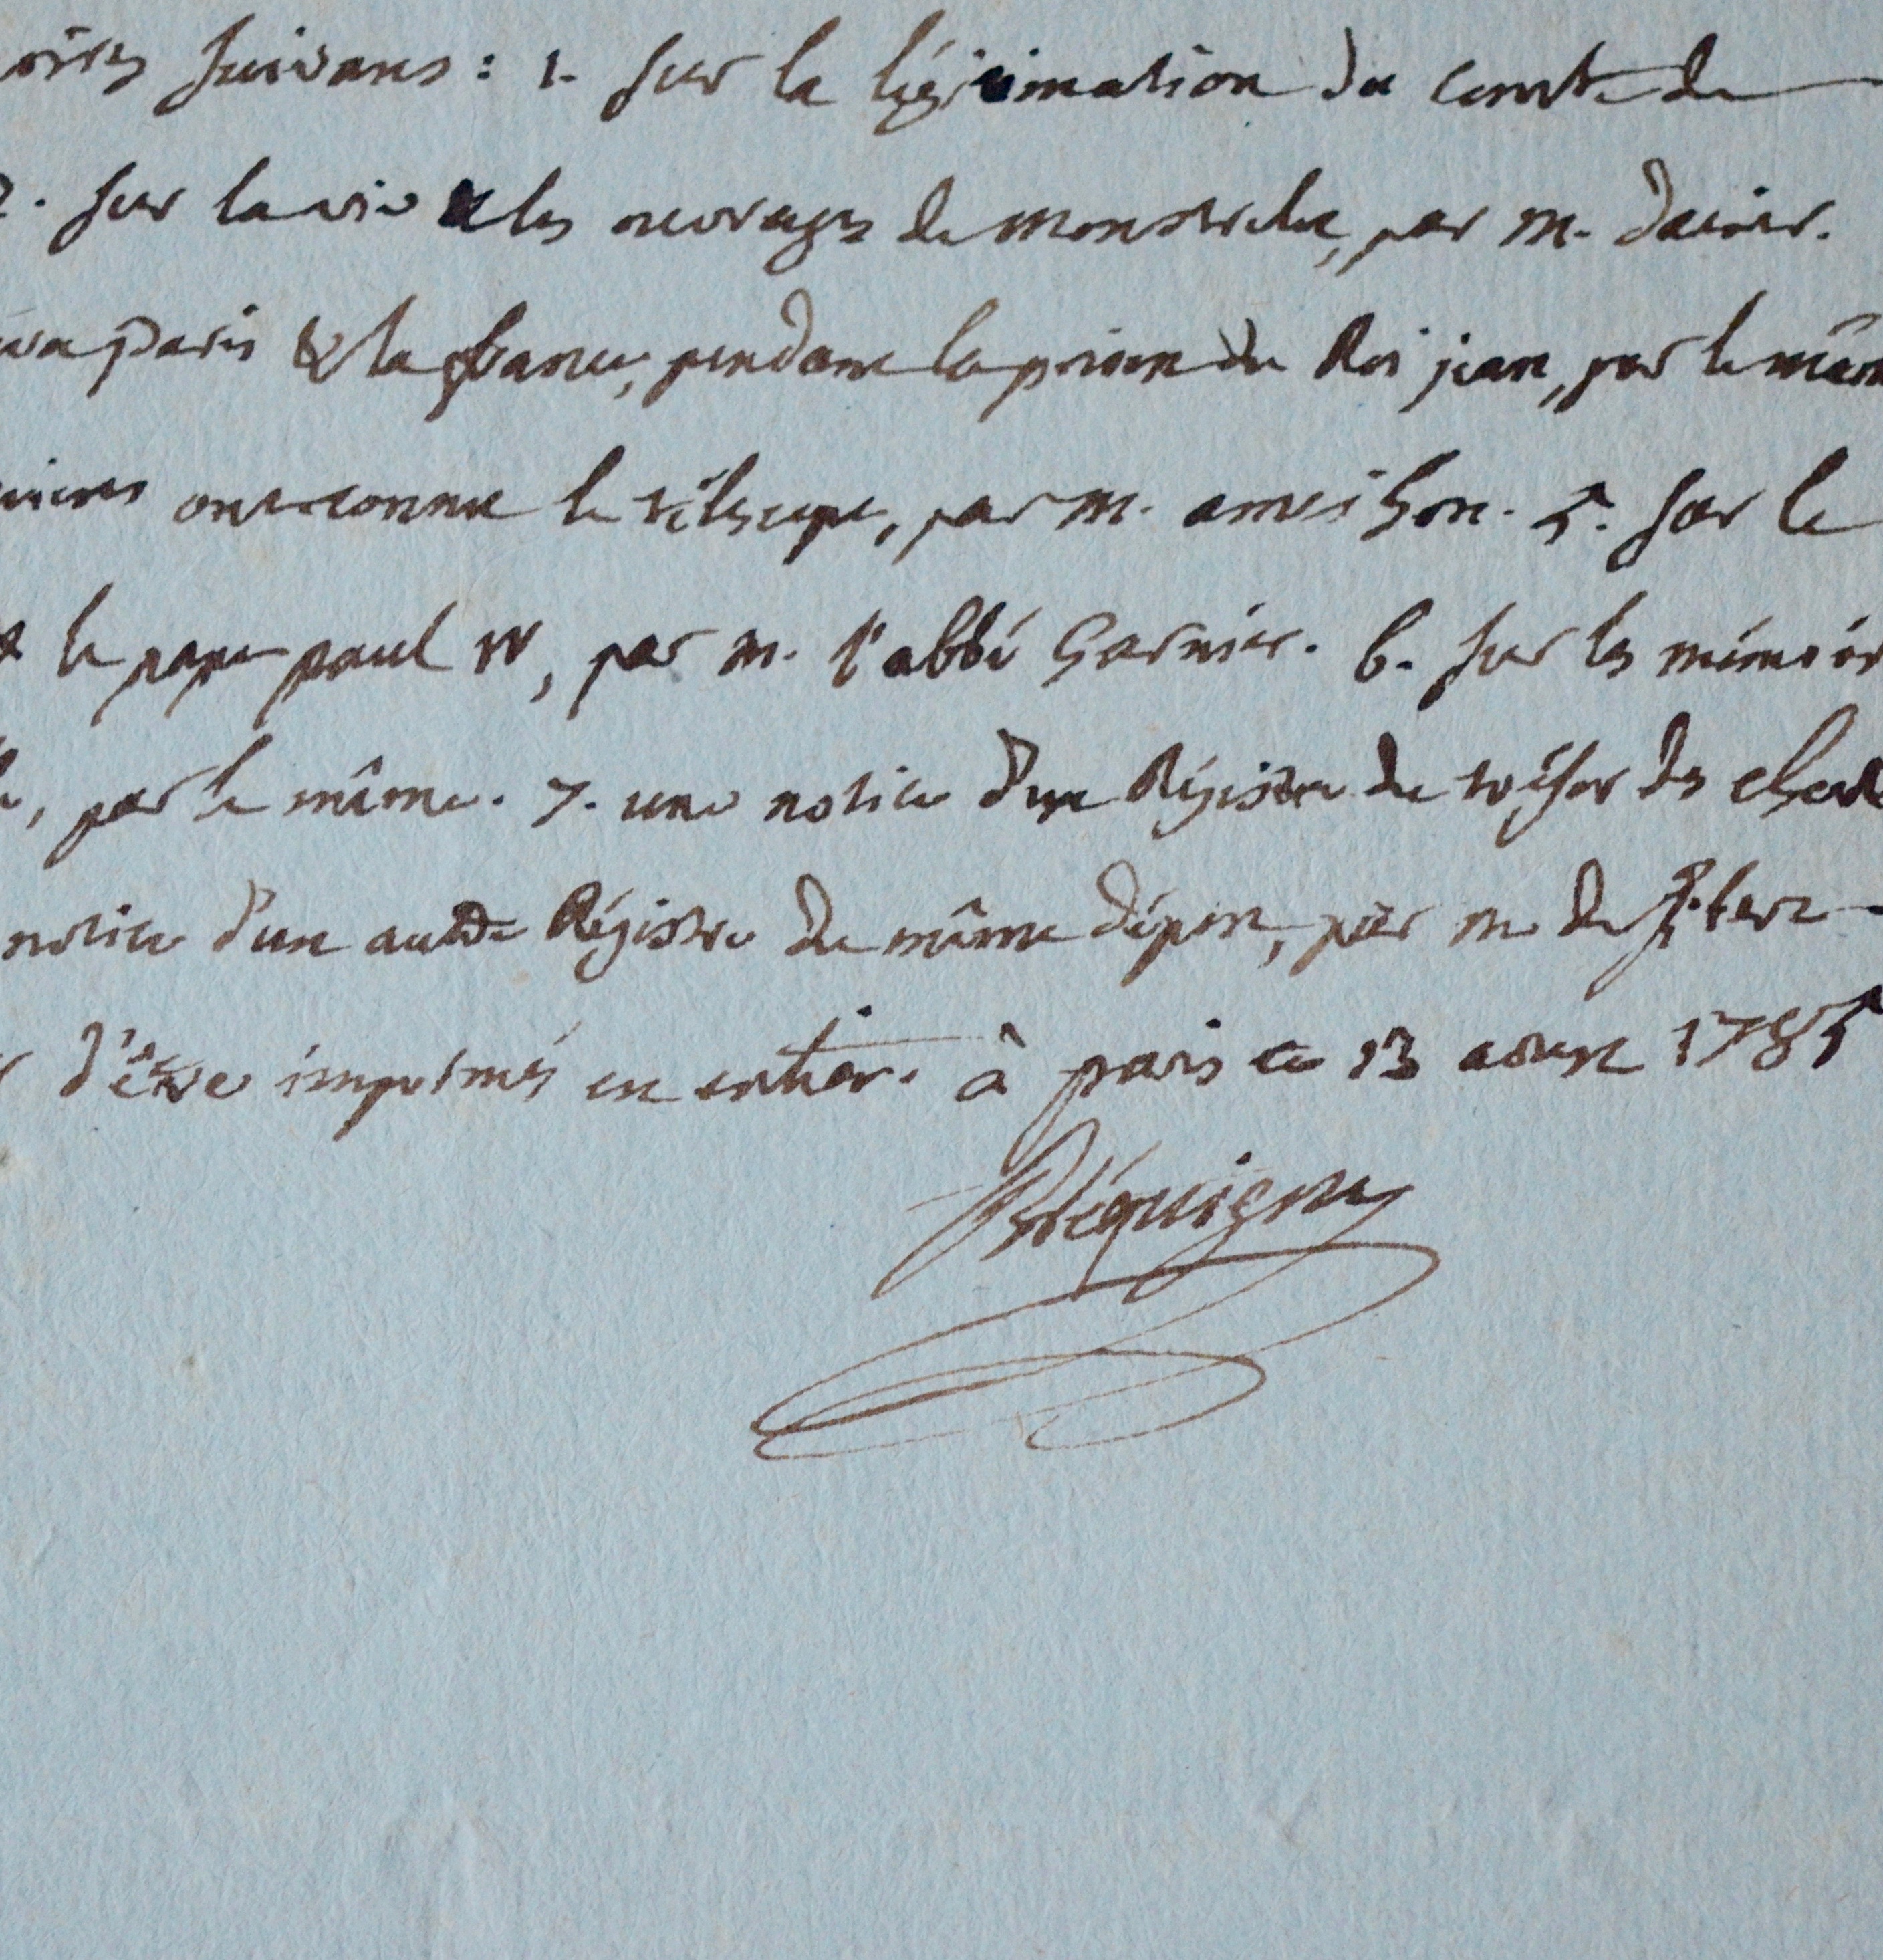 oires suivans : 1. sur la légitimation du comte de
2. sur la vie & les ouvrages de monstrelet, par m. dacier.
paris & la france, pendant la prison du Roi jean, par le mêm
ont connu le télescope, par m. ameilhon. 5. sur le
& le pape paul IV, par m. l'abbé Garnier. 6. sur les mémoir
, par le même. 7. une notice d'un Régistre du trésor des char
notice d'un autre Régistre du même dépot, par m. de
d'être imprimés en entier. à paris ce 13 aoust 1785
Bréquigny